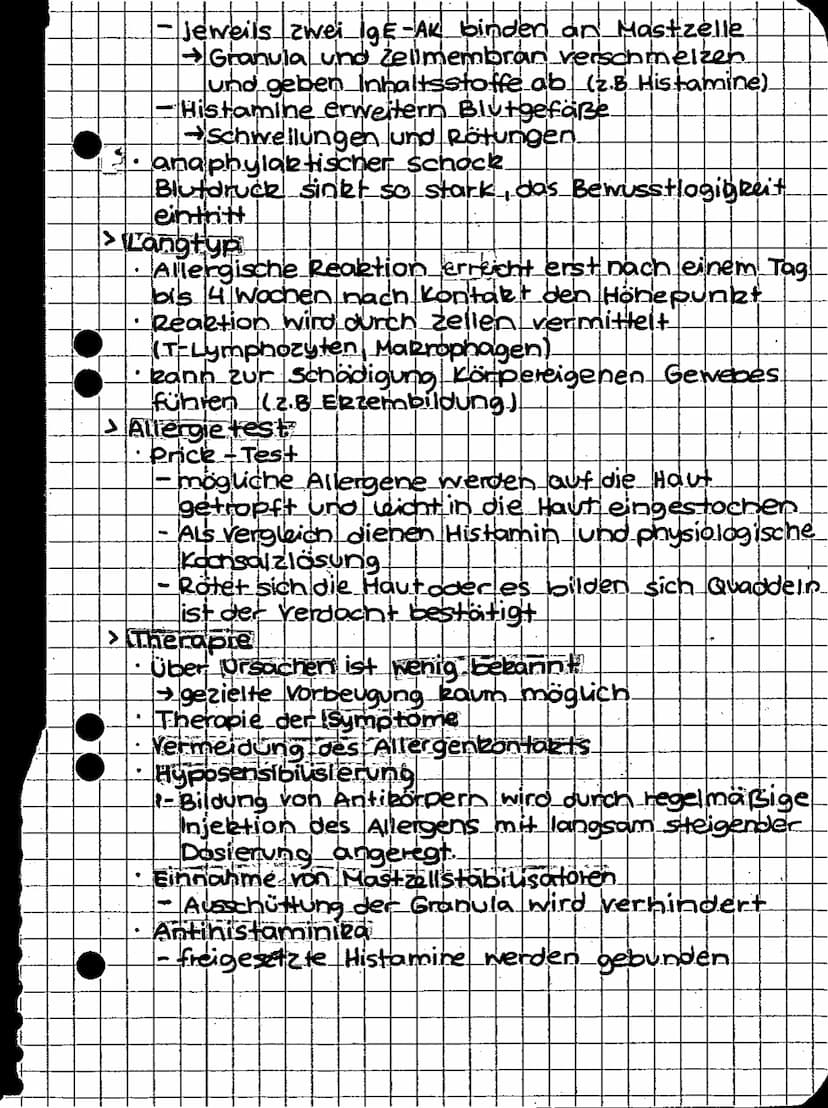 - jeweils zwei IgE-AK binden an Mastzelle
→ Granula und Zellmembran verschmelzen
und geben Inhaltsstoffe ab (z.B Histamine)
- Histamine erweitern Blutgefäße
→ Schwellungen und Rötungen
· anaphylaktischer schock
Blutdruck sinkt so stark, das Bewusstlogigkeit
eintritt
> Langtyp
· Allergische Reaktion erreicht erst nach einem Tag
bis 4 Wochen nach Kontakt den Höhepunkt
· Reaktion wird durch Zellen vermittelt
(T-Lymphozyten, Makrophagen)
· kann zur Schädigung Körpereigenen Gewebes
führen (z.B Ekzembildung)
> Allergietest
· Prick-Test
- mögliche Allergene werden auf die Haut
getropft und leicht in die Haut eingestochen
- Als Vergleich dienen Histamin und physiologische
Kochsalzlösung
- Rötet sich die Haut oder es bilden sich Quaddeln
ist der Verdacht bestätigt
> Therapie
· Über Ursachen ist wenig bekannt
→ gezielte Vorbeugung kaum möglich
· Therapie der Symptome
· Vermeidung des Allergenkontakts
· Hyposensibilisierung
- Bildung von Antikörpern wird durch regelmäßige
Injektion des Allergens mit langsam steigender
Dosierung angeregt.
· Einnahme von Mastzellstabilisatoren
- Ausschüttung der Granula wird verhindert
· Antihistaminika
- freigesetzte Histamine werden gebunden